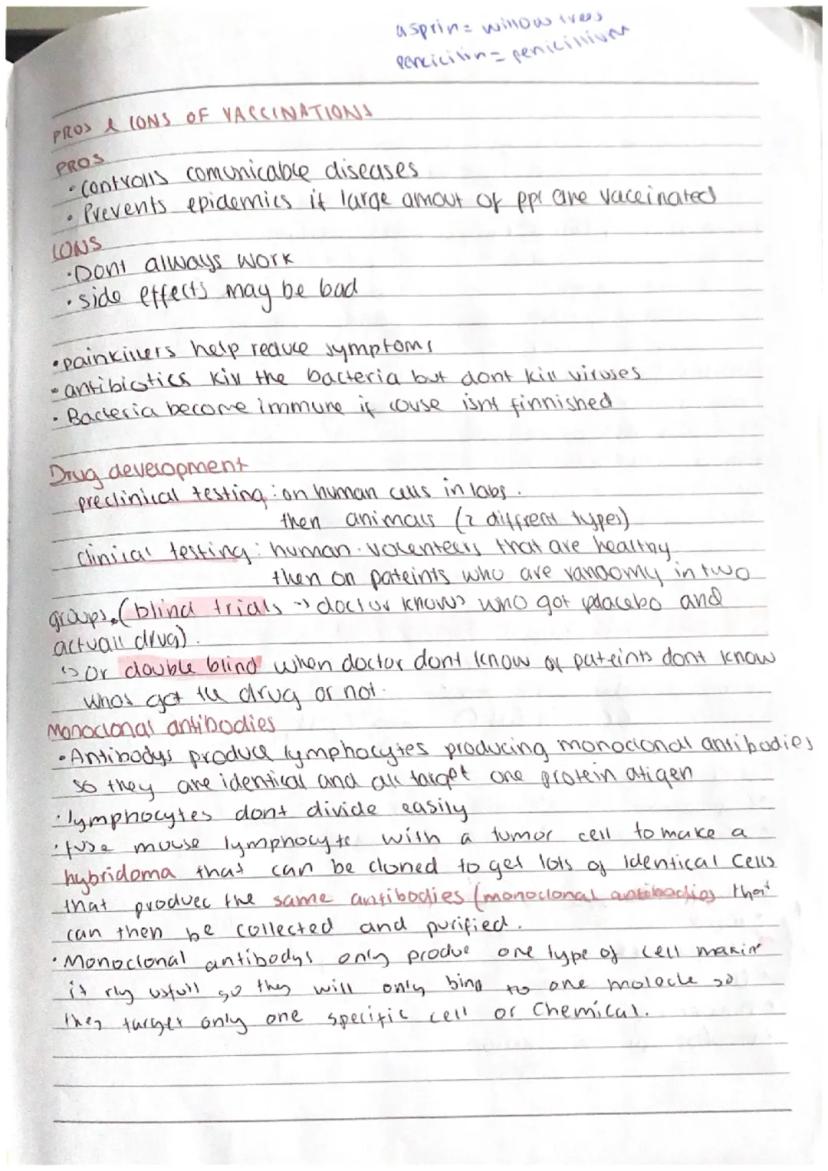 asprin = willow trees
pencicilin = penicillium
PROS & CONS OF VACCINATIONS
PROS
• controlls comunicable diseases
• Prevents epidemics if large amout of ppl are vaccinated
CONS
• Dont always work
• side effects may be bad
• painkillers help reduce symptoms
• antibiotics kill the bacteria but dont kill viruses
• Bacteria become immune if couse isnt finnished
Drug development
preclinical testing: on human cells in labs.
then animals (2 different types)
clinical testing: human volenteers that are healthy
then on pateints who are randomy in two
groups. (blind trials → doctor knows who got placebo and
actuall drug).
↳ Or double blind when doctor dont know or pateints dont know
whos got the drug or not.
Monoclonal antibodies
• Antibodys produce lymphocytes producing monoclonal antibodies
so they are identical and all target one protein atigen
• lymphocytes dont divide easily
• fuse mouse lymphocyte with a tumor cell to make a
hybridoma that can be cloned to get lots of identical cells
that produce the same antibodies (monoclonal antibodies that
can then be collected and purified.
• Monoclonal antibodys only produe one type of cell makin
it rly usfull so they will only bind to one molecle so
they target only one specific cell or Chemical.